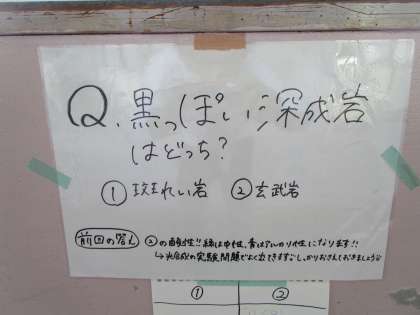 Q. 黒っぽい深成岩
はどっち?
① 斑れい岩 ② 玄武岩
前回の答え ②の酸性!! 緑は中性、青はアルカリ性になります!!
↳光合成の実験問題でよく出てきますしっかりおさえておきましょう
① ②